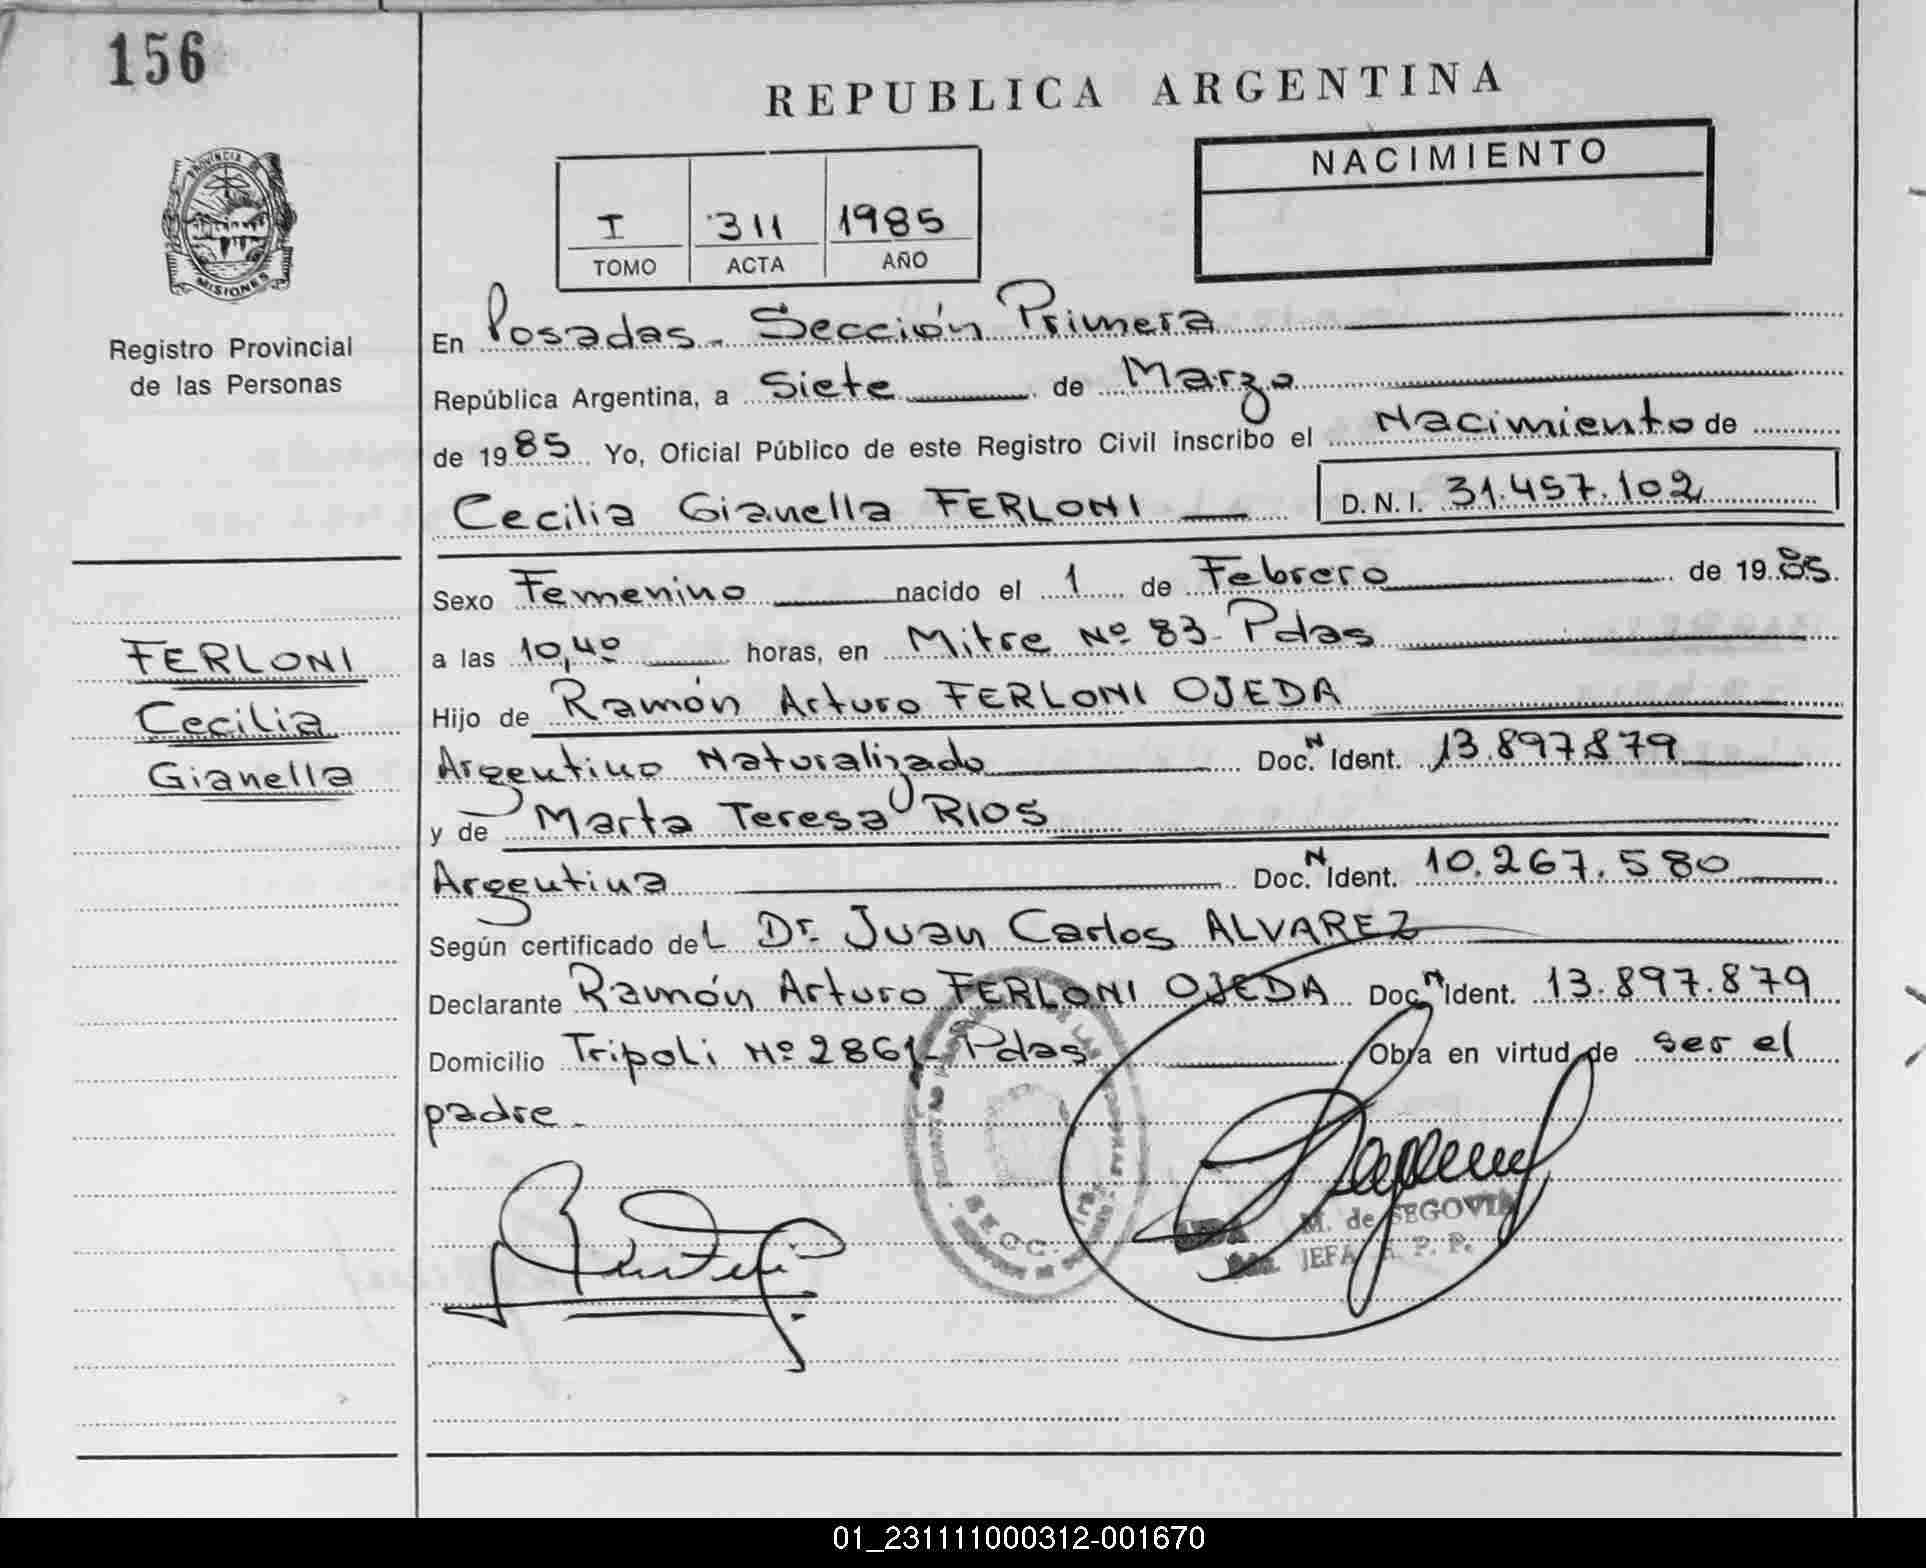 156
REPUBLICA ARGENTINA
NACIMIENTO
I 311 1985
TOMO ACTA AÑO
PROVINCIA DE
MISIONES
Registro Provincial
de las Personas
En Posadas - Sección Primera
República Argentina, a Siete de Marzo
de 1985 Yo, Oficial Público de este Registro Civil inscribo el Nacimiento de
Cecilia Gianella FERLONI D. N. I. 31.457.102
Sexo Femenino nacido el 1 de Febrero de 1985.
a las 10,40 horas, en Mitre Nº 83 - Pdas
Hijo de Ramón Arturo FERLONI OJEDA
Argentino Naturalizado Doc. N Ident. 13.897.879
y de Marta Teresa RIOS
Argentina Doc. N Ident. 10.267.580
Según certificado del Dr. Juan Carlos ALVAREZ
Declarante Ramón Arturo FERLONI OJEDA Doc. N Ident. 13.897.879
Domicilio Tripoli Nº 2861 - Pdas Obra en virtud de ser el
padre.
FERLONI
Cecilia
Gianella
SECC. 1ra
M. de SEGOVIA
JEFA R. P. P.
01_231111000312-001670